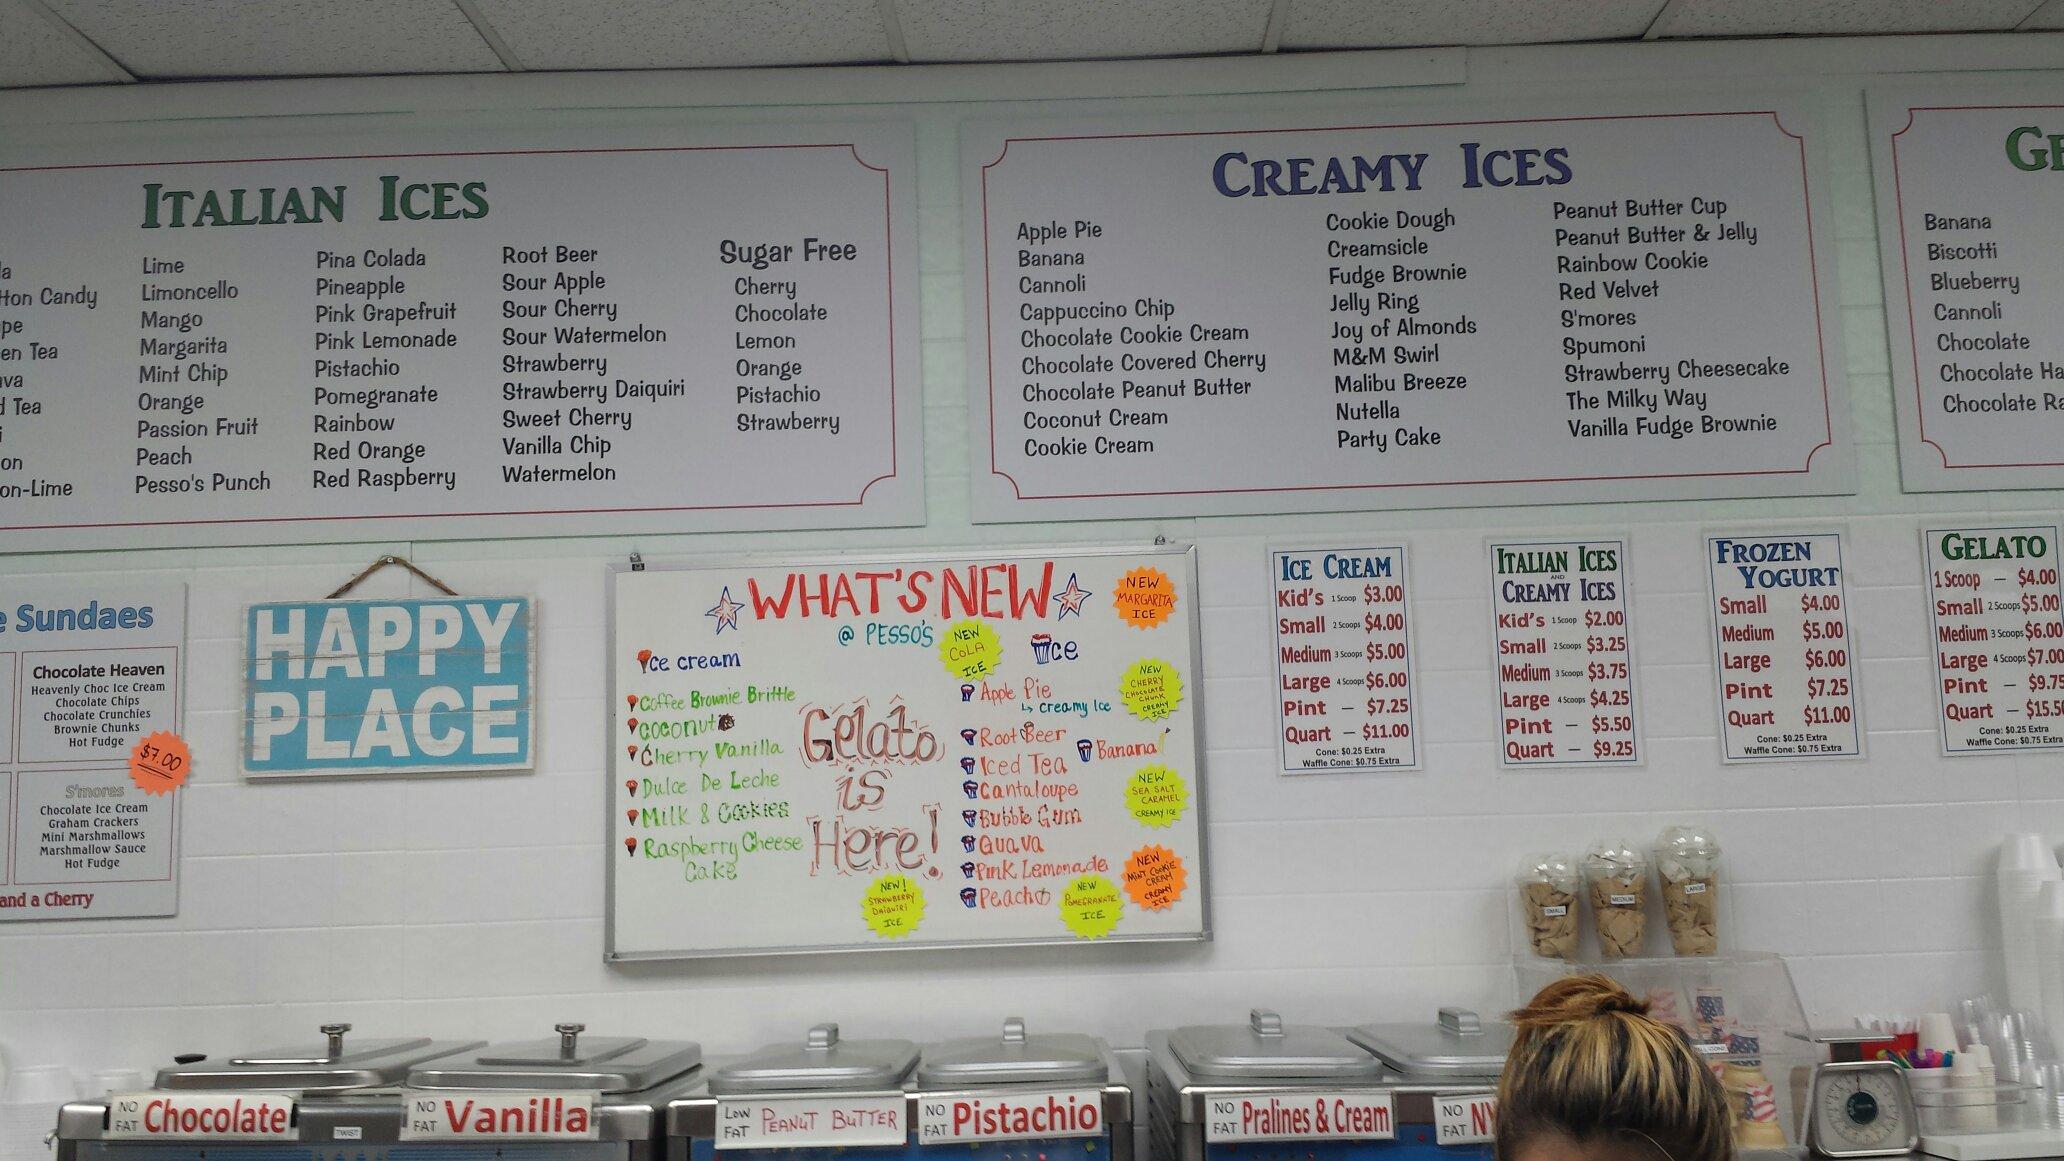 ITALIAN ICES
Lime
Limoncello
Mango
Margarita
Mint Chip
Orange
Passion Fruit
Peach
Pesso's Punch
Pina Colada
Pineapple
Pink Grapefruit
Pink Lemonade
Pistachio
Pomegranate
Rainbow
Red Orange
Red Raspberry
Root Beer
Sour Apple
Sour Cherry
Sour Watermelon
Strawberry
Strawberry Daiquiri
Sweet Cherry
Vanilla Chip
Watermelon
Sugar Free
Cherry
Chocolate
Lemon
Orange
Pistachio
Strawberry
Candy
Tea
Tea
on-Lime
CREAMY ICES
Apple Pie
Banana
Cannoli
Cappuccino Chip
Chocolate Cookie Cream
Chocolate Covered Cherry
Chocolate Peanut Butter
Coconut Cream
Cookie Cream
Cookie Dough
Creamsicle
Fudge Brownie
Jelly Ring
Joy of Almonds
M&M Swirl
Malibu Breeze
Nutella
Party Cake
Peanut Butter Cup
Peanut Butter & Jelly
Rainbow Cookie
Red Velvet
S'mores
Spumoni
Strawberry Cheesecake
The Milky Way
Vanilla Fudge Brownie
GE
Banana
Biscotti
Blueberry
Cannoli
Chocolate
Chocolate Ha
Chocolate Ra
Sundaes
Chocolate Heaven
Heavenly Choc Ice Cream
Chocolate Chips
Chocolate Crunchies
Brownie Chunks
Hot Fudge
$7.00
S'mores
Chocolate Ice Cream
Graham Crackers
Mini Marshmallows
Marshmallow Sauce
Hot Fudge
and a Cherry
HAPPY
PLACE
WHAT'S NEW
@ PESSO'S
Ice cream
Coffee Brownie Brittle
Coconut
Cherry Vanilla
Dulce De Leche
Milk & Cookies
Raspberry Cheese
Cake
Gelato
is
Here!
NEW!
STRAWBERRY
DAIQUIRI
ICE
NEW
COLA
ICE
Ice
Apple Pie
↳ creamy Ice
Root Beer
Banana
Iced Tea
Cantaloupe
Bubble Gum
Guava
Pink Lemonade
Peach
NEW
MARGARITA
ICE
NEW
CHERRY
CHOCOLATE
CHUNK
CREAMY
ICE
NEW
SEA SALT
CARAMEL
CREAMY ICE
NEW
MINT COOKIE
CREAM
CREAMY
ICE
NEW
POMEGRANATE
ICE
ICE CREAM
Kid's 1 Scoop $3.00
Small 2 Scoops $4.00
Medium 3 Scoops $5.00
Large 4 Scoops $6.00
Pint – $7.25
Quart – $11.00
Cone: $0.25 Extra
Waffle Cone: $0.75 Extra
ITALIAN ICES
AND
CREAMY ICES
Kid's 1 Scoop $2.00
Small 2 Scoops $3.25
Medium 3 Scoops $3.75
Large 4 Scoops $4.25
Pint – $5.50
Quart – $9.25
FROZEN
YOGURT
Small $4.00
Medium $5.00
Large $6.00
Pint $7.25
Quart $11.00
Cone: $0.25 Extra
Waffle Cone: $0.75 Extra
GELATO
1 Scoop – $4.00
Small 2 Scoops $5.00
Medium 3 Scoops $6.00
Large 4 Scoops $7.00
Pint – $9.75
Quart – $15.50
Cone: $0.25 Extra
Waffle Cone: $0.75 Extra
SMALL
MEDIUM
LARGE
NO
FAT Chocolate
TWIST
NO
FAT Vanilla
LOW
FAT PEANUT BUTTER
NO
FAT Pistachio
NO
FAT Pralines & Cream
NO
FAT NY